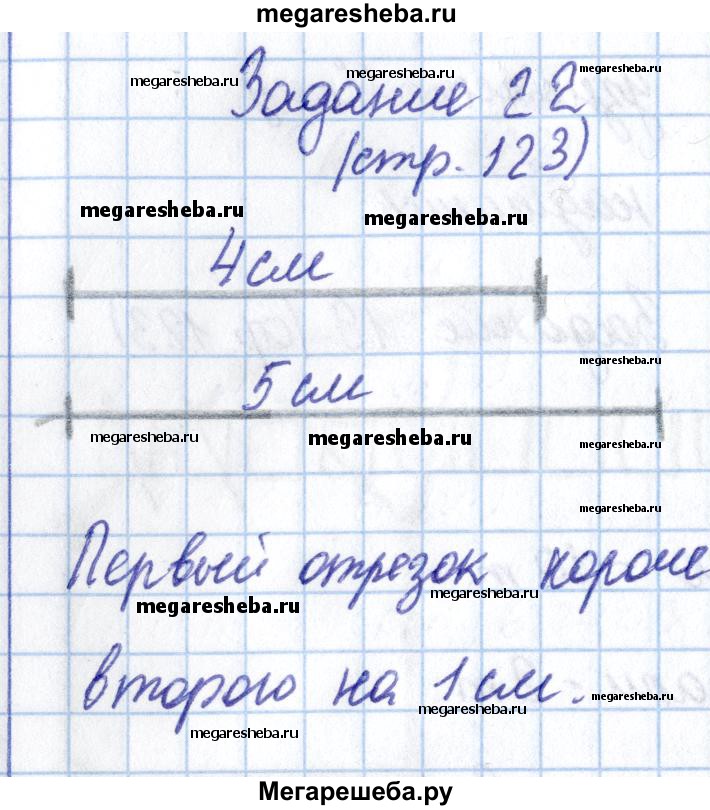 megaresheba.ru
megaresheba.ru megaresheba.ru megaresheba.ru
Задание 22
megaresheba.ru
(стр. 123)
megaresheba.ru megaresheba.ru
4 см
megaresheba.ru
5 см
megaresheba.ru megaresheba.ru megaresheba.ru
megaresheba.ru
Первый отрезок короче
megaresheba.ru megaresheba.ru
второго на 1 см.
megaresheba.ru megaresheba.ru
megaresheba.ru
Мегарешеба.ру